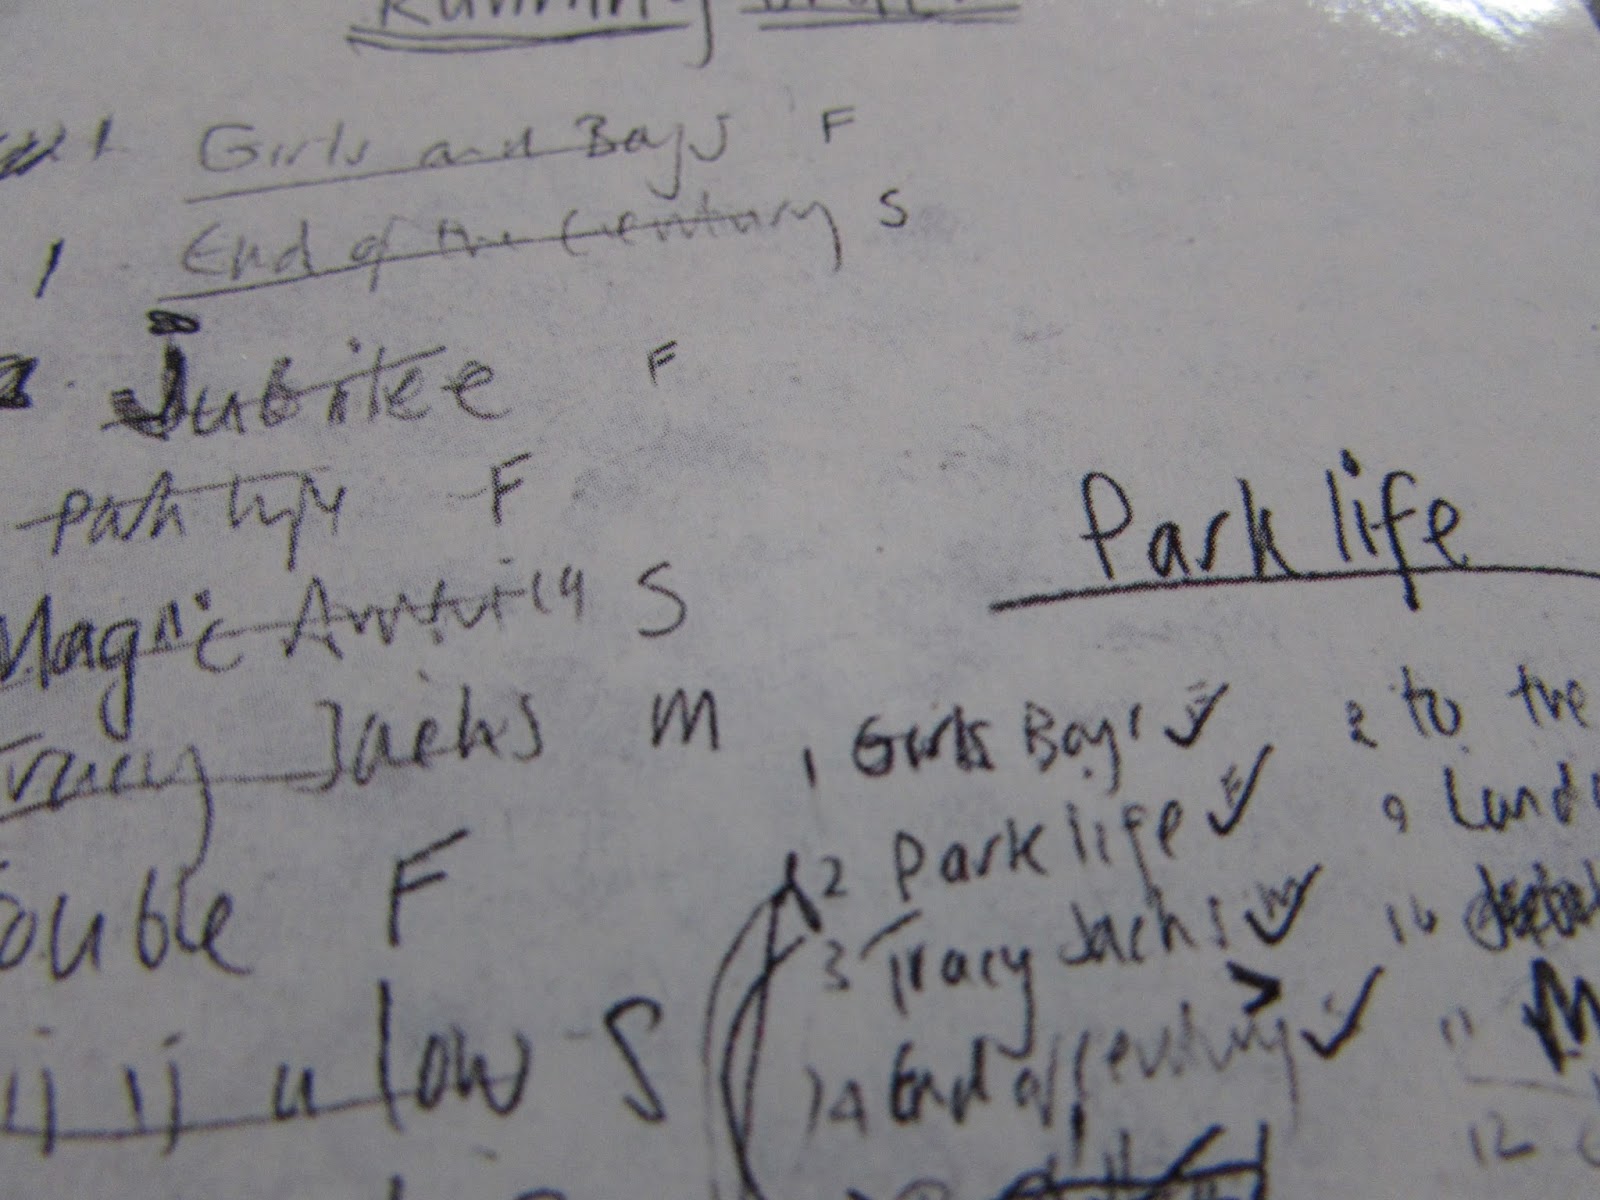 Running Order
1 Girls and Boys F
1 End of the Century S
Jubilee F
Path life F
Magic America S
Tracy Jacks M
ouble F
low S
Park life
1 Girls Boys
2 Park life
3 Tracy Jacks
4 End of century
2 to the
9 Lond
10
11 M
12